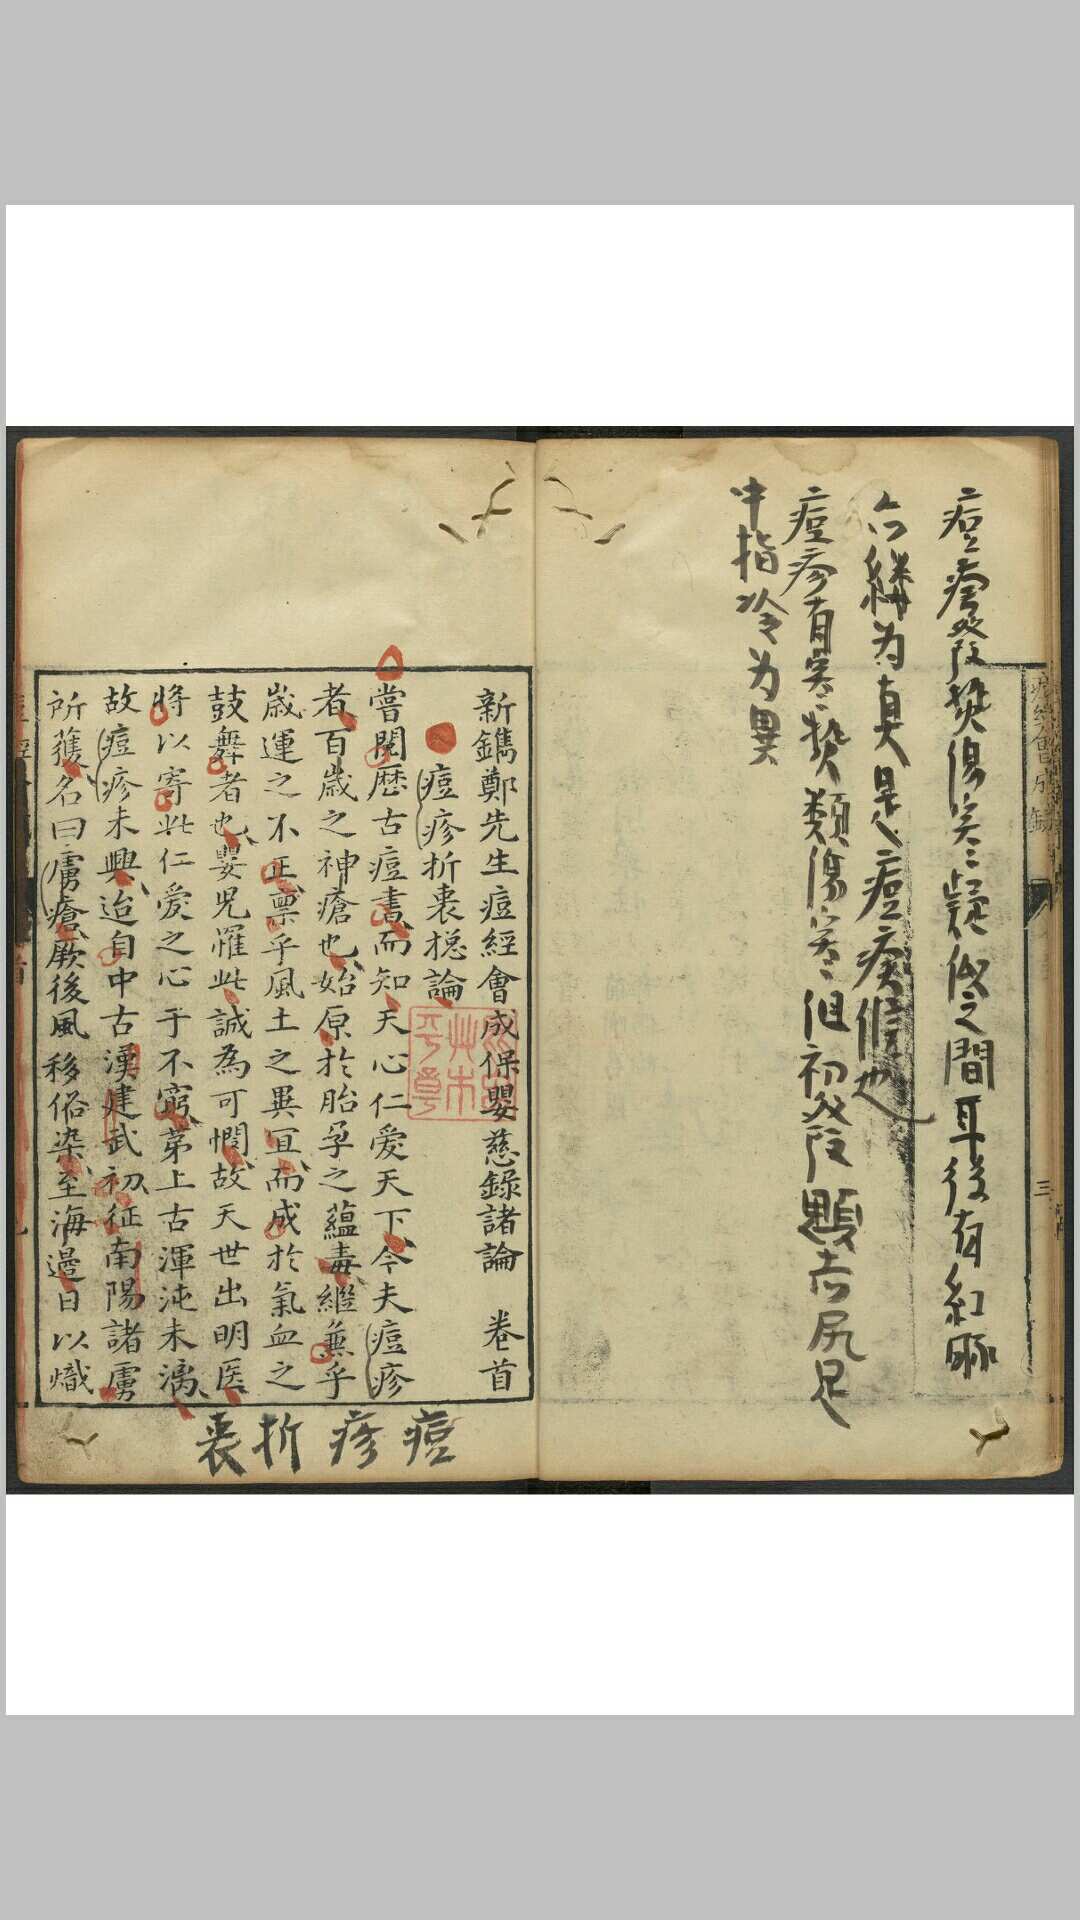 痘瘡發熱傷寒疑似之間耳後有紅脉
六縷为真是痘疾候也
痘疹有寒熱類傷寒但初發
尻足
中指冷为異
新鐫鄭先生痘經會成保嬰慈錄諸論 卷首
痘疹折衷捴論
嘗閱歴古痘書而知天心仁愛天下今夫痘疹
者百歲之神瘡也始原於胎孕之蘊毒繼蒹乎
歲運之不正禀乎風土之異冝而成於氣血之
鼓舞者也嬰児罹此誠為可憫故天世出明医
將以寄此仁愛之心于不窮苐上古渾沌未漓
故痘疹未興迨自中古漢建武初征南陽諸虜
所獲名曰虜瘡厥後風移俗染至海邊日以熾
痘疹折衷